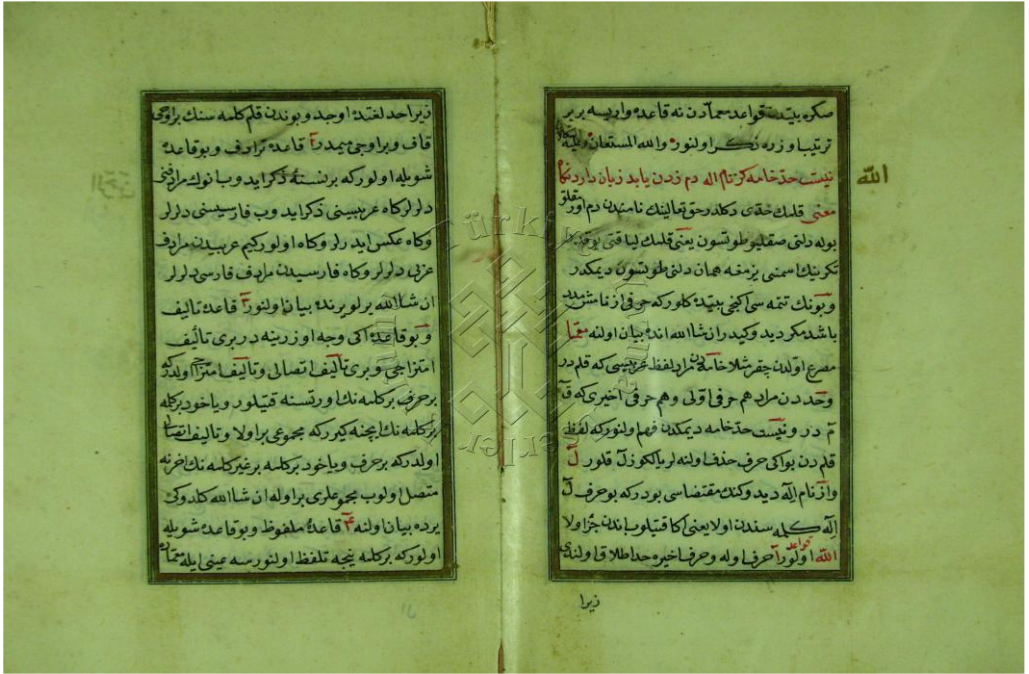 صكره بيتده قواعد معمادن نه قاعده واريسه بربر
ترتيب اوزره ذكر اولنور والله المستعان وعليه
نيست حد خامه كز نام اله دم زدن يابد زبان دارد نكاه
الله
معنى قلمك حدى دكلدر حق تعالينك نامندن دم اورمق
بوله دلنى صقليو طوتسون يعنى قلمك لياقتى يوقدر
تكرينك اسمنى يزمغه همان دلنى طوتسون ديمكدر
وبونك تتمه سى اكنجى بيتده كلور كه حرفى از نامش مدد
باشد مكر ديدوكيدر ان شاالله انده بيان اولنه معما
مصرع اولدن چقر مثلا خامه دن مراد لفظ عربيسى كه قلم در
وحد دن مراد هم حرف اولى وهم حرف اخيرى كه ق
م در ونيست حد خامه ديمكدن فهم اولنور كه لفظ
قلم دن بو اكى حرف حذف اولنه لر يالكوز ل قلور ل
واز نام اله ديدوكنك مقتضاسى بودر كه بو حرف ل
اله كلمه سندن اولا يعنى اكا قتيلوب اندن جزء اولا
الله اولور قواعد آ حرف اوله وحرف اخيره حد اطلاق اولندى
زيرا
زيرا حد لغتده اوجدر وبوندن قلم كلمه سنك بر اوجى
قاف وبر اوجى ميمدر ٢ قاعدۀ ترادف وبو قاعده
شويله اولور كه بر نسنه ذكر ايدوب انوك مرادفنى
ديلرلر كاه عربيسنى ذكر ايدوب فارسيسنى ديلرلر
وكاه عكس ايدرلر وكاه اولور كيم عربيدن مرادف
عربى ديلرلر وكاه فارسيدن مرادف فارسى ديلرلر
ان شاالله يرلو يرنده بيان اولنور ٣ قاعدۀ تاليف
وبو قاعده اكى وجه اوزرينه در برى تأليف
امتزاجى وبرى تأليف اتصالى وتاليف امتزاجى اولدر كه
بر حرف بر كلمه نك اورتسنه قتيلور وياخود بر كلمه
بر كلمه نك ايچنه كيرر كه مجموعى بر اولا وتاليف اتصالى
اولدر كه بر حرف وياخود بر كلمه بر غير كلمه نك اخرنه
متصل اولوب مجموعلرى بر اوله ان شاالله كلدوكى
يرده بيان اولنه ۴ قاعدۀ ملفوظ وبو قاعده شويله
اولور كه بر كلمه نيجه تلفظ اولنورسه عينى ايله
Türkiye
Yazma
Eserler